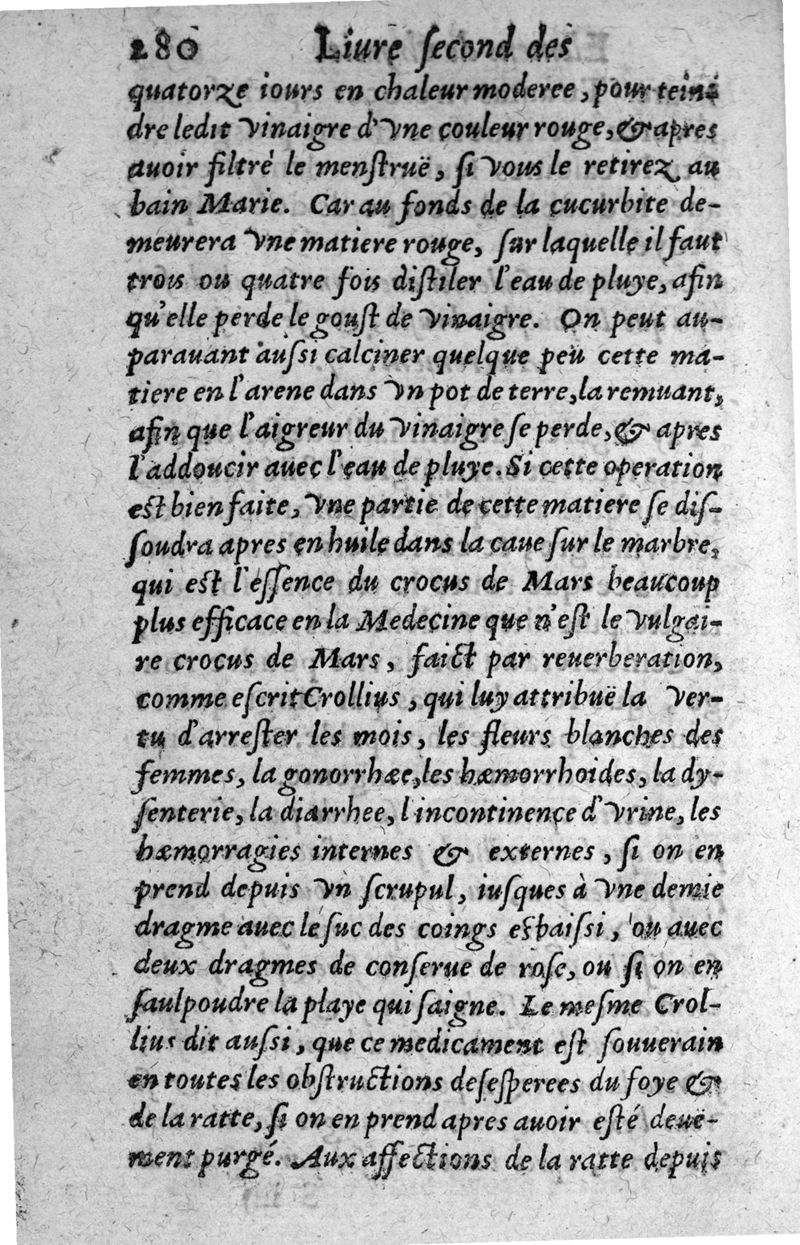 280 Liure ſecond des
quatorze iours en chaleur moderee, pour tein-
dre ledit vinaigre d'vne couleur rouge, & apres
auoir filtré le menſtruë, ſi vous le retirez au
bain Marie. Car au fonds de la cucurbite de-
meurera vne matiere rouge, ſur laquelle il faut
trois ou quatre fois diſtiler l'eau de pluye, afin
qu'elle perde le gouſt de vinaigre. On peut au-
parauant auſsi calciner quelque peu cette ma-
tiere en l'arene dans vn pot de terre, la remuant,
afin que l'aigreur du vinaigre ſe perde, & apres
l'addoucir auec l'eau de pluye. Si cette operation
eſt bien faite, vne partie de cette matiere ſe diſ-
ſoudra apres en huile dans la caue ſur le marbre,
qui eſt l'eſſence du crocus de Mars beaucoup
plus efficace en la Medecine que n'eſt le vulgai-
re crocus de Mars, faict par reuerberation,
comme eſcrit Crollius, qui luy attribuë la ver-
tu d'arreſter les mois, les fleurs blanches des
femmes, la gonorrhæe, les hæmorrhoides, la dy-
ſenterie, la diarrhee, l'incontinence d'vrine, les
hæmorragies internes & externes, ſi on en
prend depuis vn ſcrupul, iuſques à vne demie
dragme auec le ſuc des coings eſpaiſsi, ou auec
deux dragmes de conſerue de roſe, ou ſi on en
ſaulpoudre la playe qui ſaigne. Le meſme Crol-
lius dit auſsi, que ce medicament eſt ſouuerain
en toutes les obſtructions deſeſperees du foye &
de la ratte, ſi on en prend apres auoir eſté deuë-
ment purgé. Aux affections de la ratte depuis